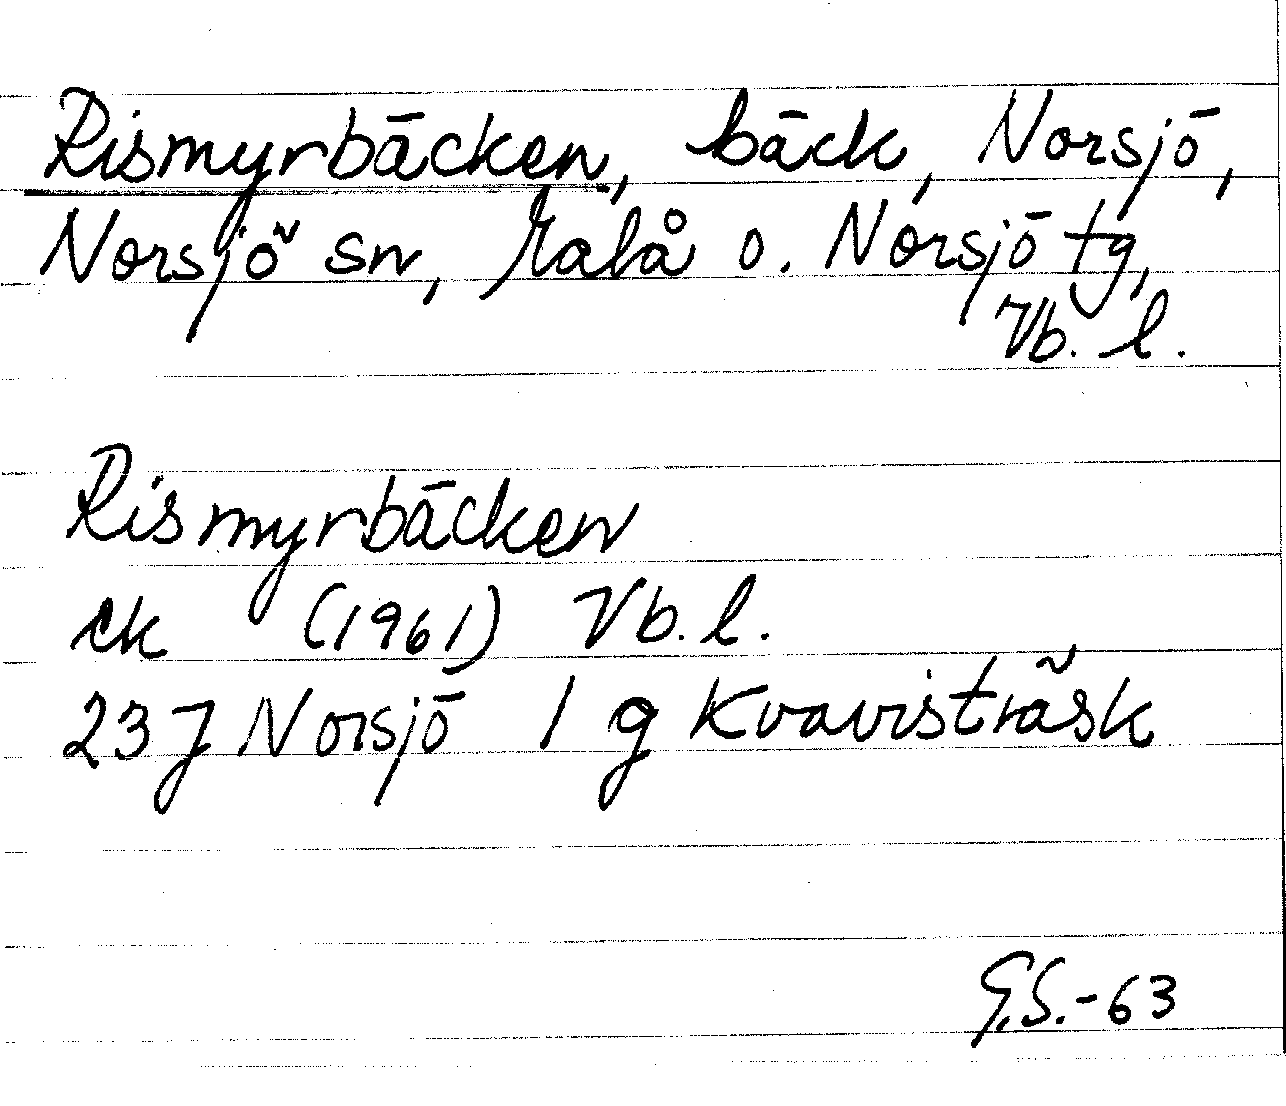 Rismyrbäcken, bäck, Norsjö,
Norsjö sn, Malå o. Norsjö tg,
Vb. l.
Rismyrbäcken
ek (1961) Vb. l.
23 J Norsjö 1 g Kvavisträsk
G.S.-63